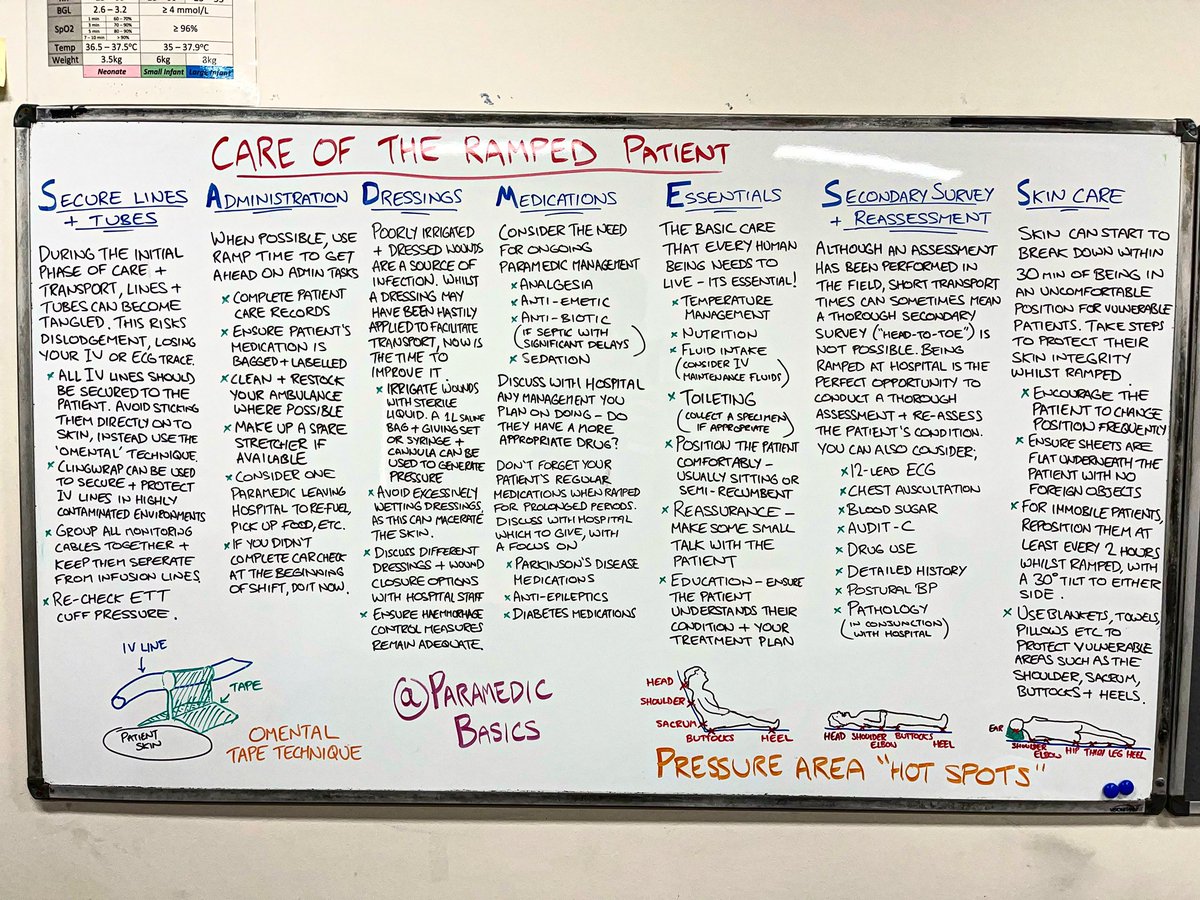 BGL 2.6 – 3.2 ≥ 4 mmol/L
SpO2
1 min 60 – 70%
3 min 70 – 90%
5 min 80 – 90%
7 – 10 min > 90%
≥ 96%
Temp 36.5 – 37.5°C 35 – 37.9°C
Weight 3.5kg 6kg 8kg
Neonate Small Infant Large Infant
CARE OF THE RAMPED PATIENT
SECURE LINES
+ TUBES
DURING THE INITIAL
PHASE OF CARE +
TRANSPORT, LINES +
TUBES CAN BECOME
TANGLED. THIS RISKS
DISLODGEMENT, LOSING
YOUR IV OR ECG TRACE.
x ALL IV LINES SHOULD
BE SECURED TO THE
PATIENT. AVOID STICKING
THEM DIRECTLY ON TO
SKIN, INSTEAD USE THE
'OMENTAL' TECHNIQUE
x CLINGWRAP CAN BE USED
TO SECURE + PROTECT
IV LINES IN HIGHLY
CONTAMINATED ENVIRONMENTS
x GROUP ALL MONITORING
CABLES TOGETHER +
KEEP THEM SEPERATE
FROM INFUSION LINES
x RE-CHECK ETT
CUFF PRESSURE.
IV LINE
TAPE
PATIENT
SKIN
OMENTAL
TAPE TECHNIQUE
ADMINISTRATION
WHEN POSSIBLE, USE
RAMP TIME TO GET
AHEAD ON ADMIN TASKS
x COMPLETE PATIENT
CARE RECORDS
x ENSURE PATIENT'S
MEDICATION IS
BAGGED + LABELLED
x CLEAN + RESTOCK
YOUR AMBULANCE
WHERE POSSIBLE
x MAKE UP A SPARE
STRETCHER IF
AVAILABLE
x CONSIDER ONE
PARAMEDIC LEAVING
HOSPITAL TO RE-FUEL,
PICK UP FOOD, ETC.
x IF YOU DIDN'T
COMPLETE CAR CHECK
AT THE BEGINNING
OF SHIFT, DO IT NOW.
DRESSINGS
POORLY IRRIGATED
+ DRESSED WOUNDS
ARE A SOURCE OF
INFECTION. WHILST
A DRESSING MAY
HAVE BEEN HASTILY
APPLIED TO FACILITATE
TRANSPORT, NOW IS
THE TIME TO
IMPROVE IT
x IRRIGATE WOUNDS
WITH STERILE
LIQUID. A 1L SALINE
BAG + GIVING SET
OR SYRINGE +
CANNULA CAN BE
USED TO GENERATE
PRESSURE
x AVOID EXCESSIVELY
WETTING DRESSINGS,
AS THIS CAN MACERATE
THE SKIN.
x DISCUSS DIFFERENT
DRESSINGS + WOUND
CLOSURE OPTIONS
WITH HOSPITAL STAFF
x ENSURE HAEMORRHAGE
CONTROL MEASURES
REMAIN ADEQUATE.
MEDICATIONS
CONSIDER THE NEED
FOR ONGOING
PARAMEDIC MANAGEMENT
x ANALGESIA
x ANTI-EMETIC
x ANTI-BIOTIC
(IF SEPTIC WITH
SIGNIFICANT DELAYS)
x SEDATION
DISCUSS WITH HOSPITAL
ANY MANAGEMENT YOU
PLAN ON DOING - DO
THEY HAVE A MORE
APPROPRIATE DRUG?
DON'T FORGET YOUR
PATIENT'S REGULAR
MEDICATIONS WHEN RAMPED
FOR PROLONGED PERIODS.
DISCUSS WITH HOSPITAL
WHICH TO GIVE, WITH
A FOCUS ON
x PARKINSON'S DISEASE
MEDICATIONS
x ANTI-EPILEPTICS
x DIABETES MEDICATIONS
@PARAMEDIC
BASICS
ESSENTIALS
THE BASIC CARE
THAT EVERY HUMAN
BEING NEEDS TO
LIVE - ITS ESSENTIAL!
x TEMPERATURE
MANAGEMENT
x NUTRITION
x FLUID INTAKE
(CONSIDER IV
MAINTENANCE FLUIDS)
x TOILETING
(COLLECT A SPECIMEN
IF APPROPRIATE)
x POSITION THE PATIENT
COMFORTABLY -
USUALLY SITTING OR
SEMI-RECUMBENT
x REASSURANCE -
MAKE SOME SMALL
TALK WITH THE
PATIENT
x EDUCATION - ENSURE
THE PATIENT
UNDERSTANDS THEIR
CONDITION + YOUR
TREATMENT PLAN
SECONDARY SURVEY
+ REASSESSMENT
ALTHOUGH AN ASSESSMENT
HAS BEEN PERFORMED IN
THE FIELD, SHORT TRANSPORT
TIMES CAN SOMETIMES MEAN
A THOROUGH SECONDARY
SURVEY ("HEAD-TO-TOE") IS
NOT POSSIBLE. BEING
RAMPED AT HOSPITAL IS THE
PERFECT OPPORTUNITY TO
CONDUCT A THOROUGH
ASSESSMENT + RE-ASSESS
THE PATIENT'S CONDITION.
YOU CAN ALSO CONSIDER;
x 12-LEAD ECG
x CHEST AUSCULTATION
x BLOOD SUGAR
x AUDIT-C
x DRUG USE
x DETAILED HISTORY
x POSTURAL BP
x PATHOLOGY
(IN CONJUNCTION
WITH HOSPITAL)
SKIN CARE
SKIN CAN START TO
BREAK DOWN WITHIN
30 MIN OF BEING IN
AN UNCOMFORTABLE
POSITION FOR VULNERABLE
PATIENTS. TAKE STEPS
TO PROTECT THEIR
SKIN INTEGRITY
WHILST RAMPED.
x ENCOURAGE THE
PATIENT TO CHANGE
POSITION FREQUENTLY
x ENSURE SHEETS ARE
FLAT UNDERNEATH THE
PATIENT WITH NO
FOREIGN OBJECTS
x FOR IMMOBILE PATIENTS,
REPOSITION THEM AT
LEAST EVERY 2 HOURS
WHILST RAMPED, WITH
A 30° TILT TO EITHER
SIDE.
x USE BLANKETS, TOWELS,
PILLOWS ETC TO
PROTECT VULNERABLE
AREAS SUCH AS THE
SHOULDER, SACRUM,
BUTTOCKS + HEELS.
HEAD
SHOULDER
SACRUM
BUTTOCKS HEEL
HEAD SHOULDER BUTTOCKS
ELBOW HEEL
EAR
SHOULDER HIP THIGH LEG HEEL
ELBOW
PRESSURE AREA "HOT SPOTS"